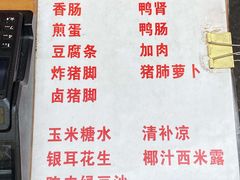 香肠 鸭肾
煎蛋 鸭肠
豆腐条 加肉
炸猪脚 猪肺萝卜
卤猪脚
玉米糖水 清补凉
银耳花生 椰汁西米露